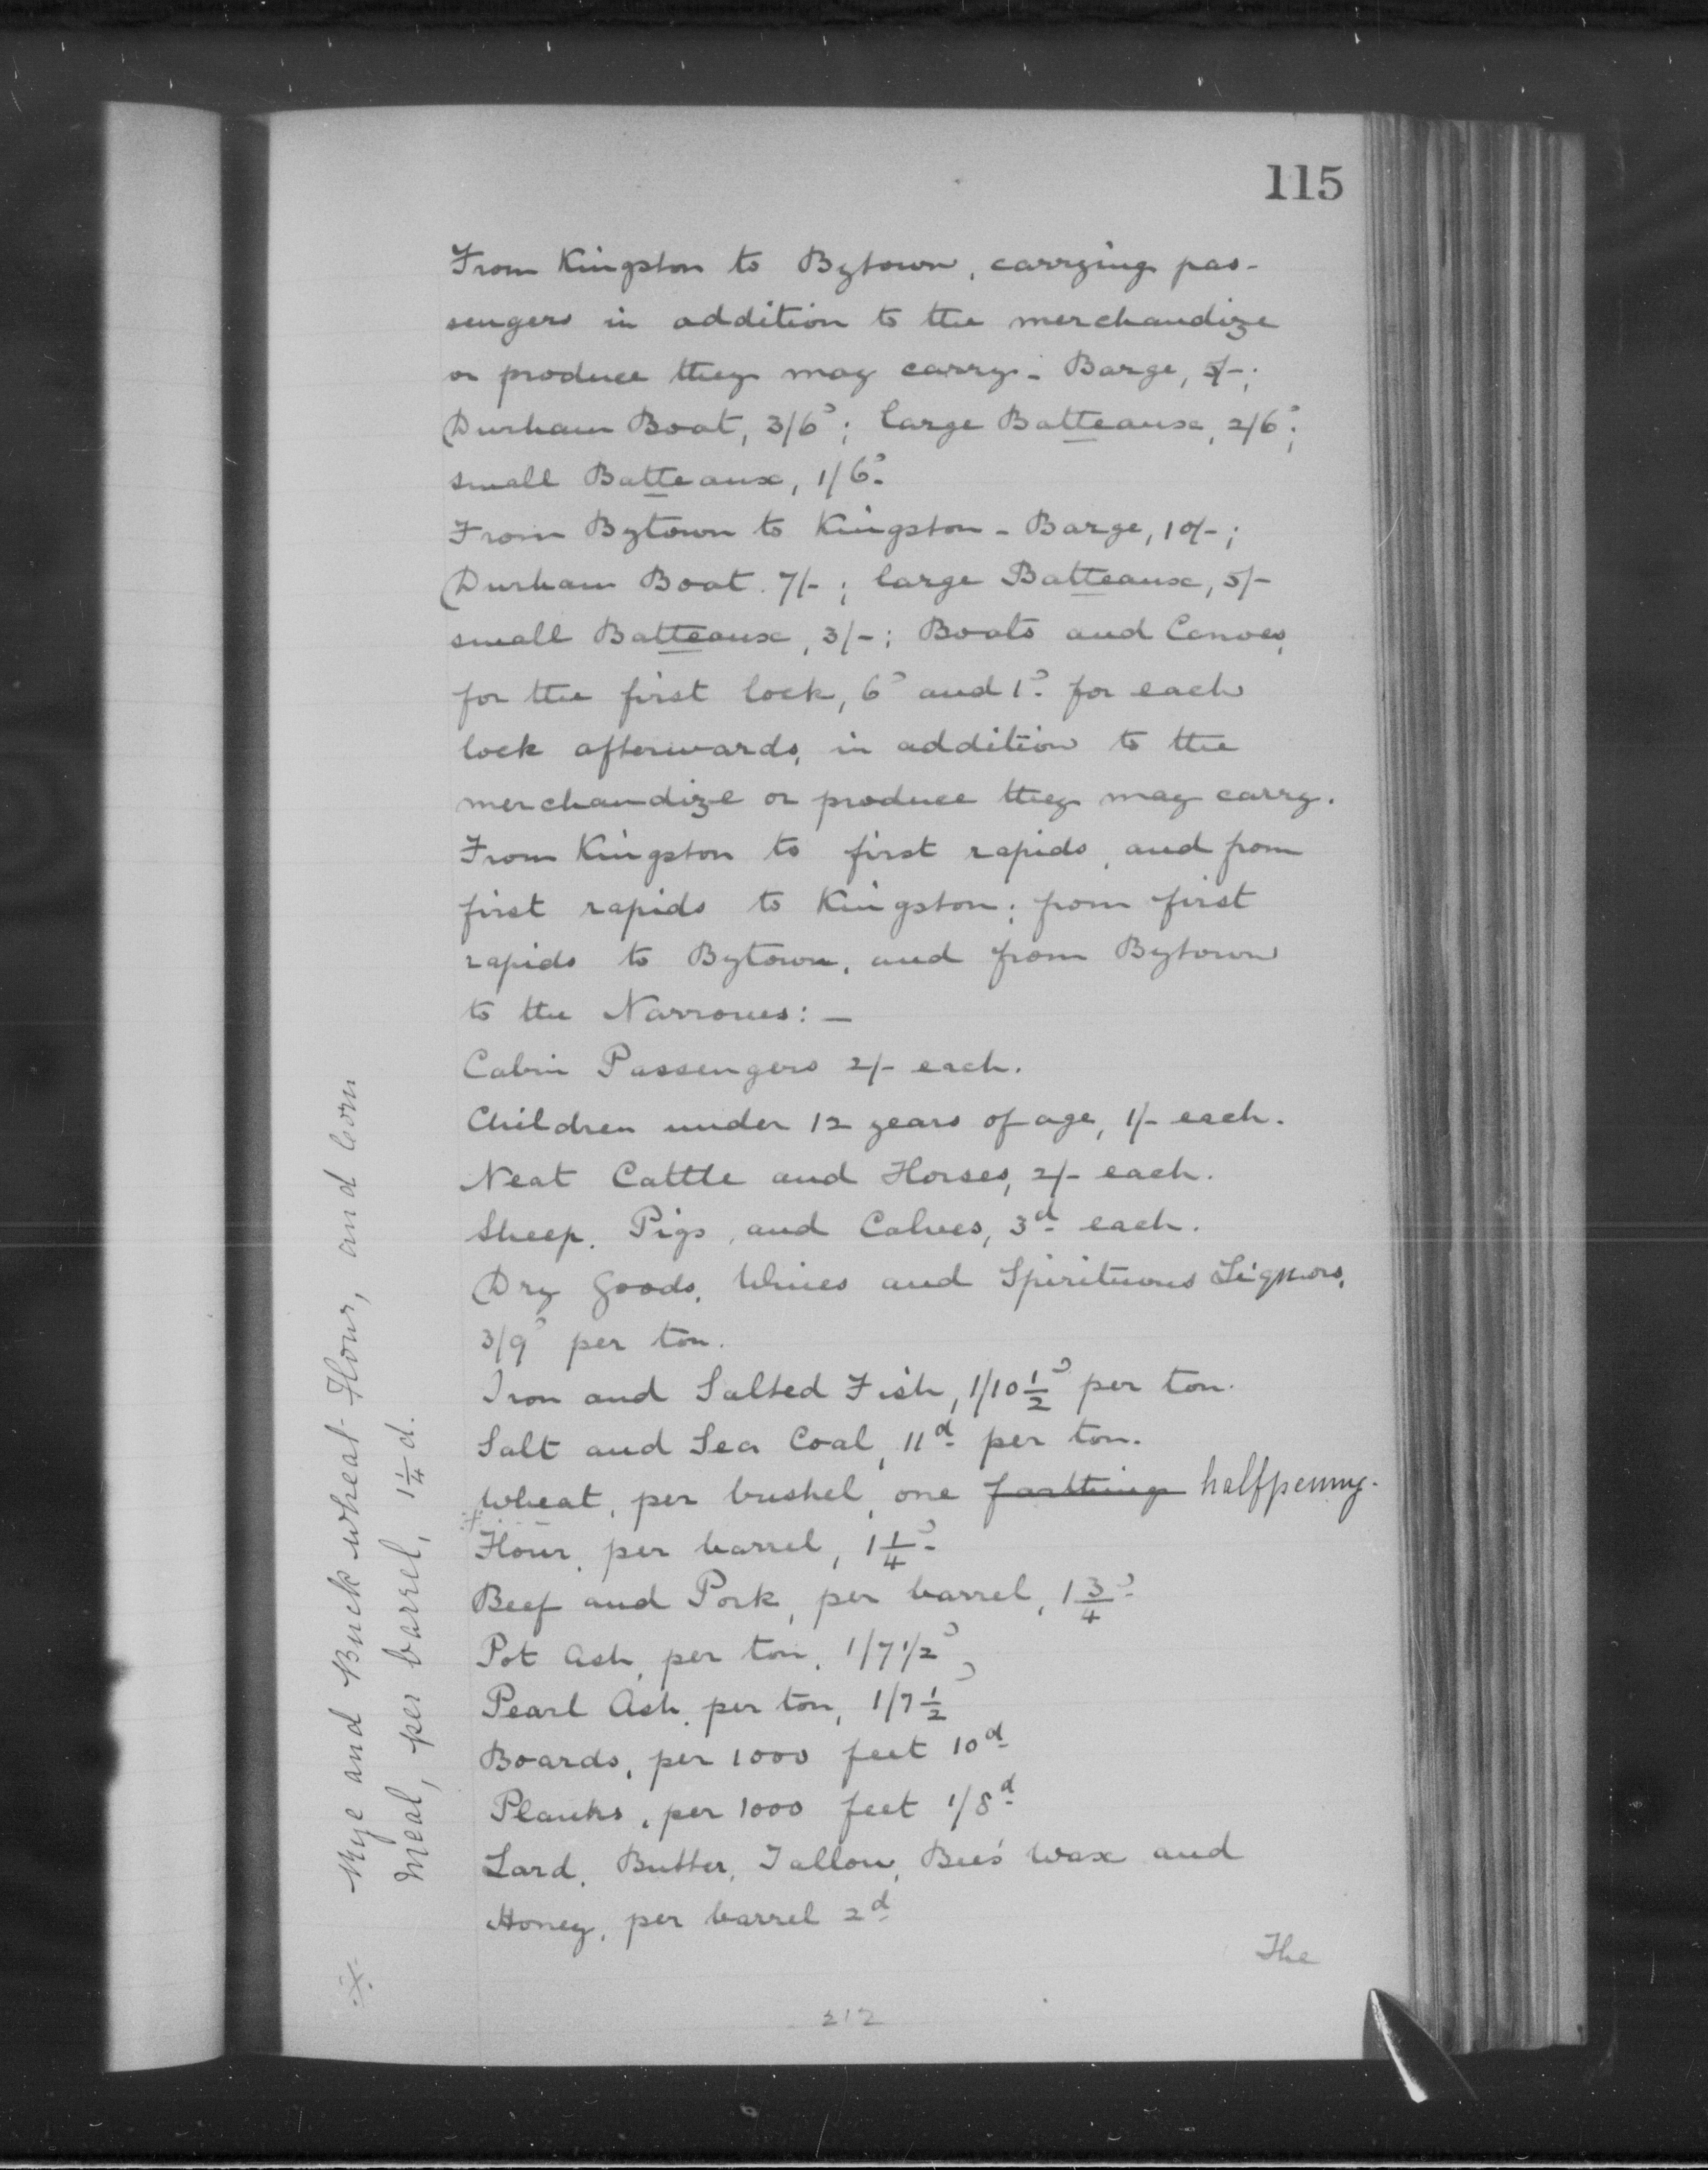 115
From Kingston to Bytown, carrying pas-
sengers in addition to the merchandize
or produce they may carry - Barge, 5/-;
Durham Boat, 3/6d; large Batteaux, 2/6d;
small Batteaux, 1/6d.
From Bytown to Kingston - Barge, 10/-;
Durham Boat. 7/-; large Batteaux, 5/-
small Batteaux, 3/-; Boats and Canoes,
for the first lock, 6d and 1d. for each
lock afterwards, in addition to the
merchandize or produce they may carry.
From Kingston to first rapids, and from
first rapids to Kingston; from first
rapids to Bytown, and from Bytown
to the Narrows: —
Cabin Passengers 2/- each.
Children under 12 years of age, 1/- each.
Neat Cattle and Horses, 2/- each.
Sheep, Pigs, and Calves, 3d each.
Dry Goods, Wines and Spirituous Liquors,
3/9d per ton.
Iron and Salted Fish, 1/10 1/2d per ton.
Salt and Sea Coal, 11d per ton.
Wheat, per bushel, one farthing halfpenny.
※ Flour, per barrel, 1 1/4d
Beef and Pork, per barrel, 1 3/4d
Pot Ash, per ton, 1/7 1/2d
Pearl Ash, per ton, 1/7 1/2d
Boards, per 1000 feet 10d
Planks, per 1000 feet 1/8d
Lard, Butter, Tallow, Bee's Wax and
Honey, per barrel 2d
The
212
※ Rye and Buckwheat Flour, and Corn
Meal, per barrel, 1 1/4 d.